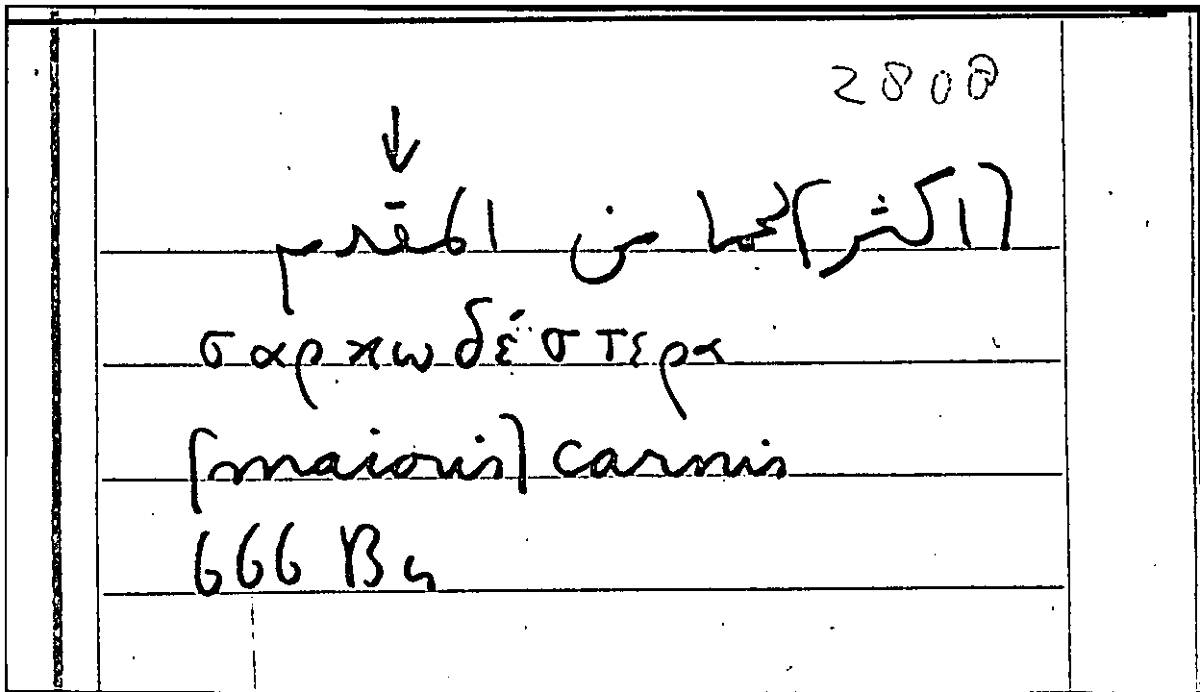 2808
[اكثر] لحما من المقدم
σαρκωδέστερα
[maioris] carnis
666 B 4